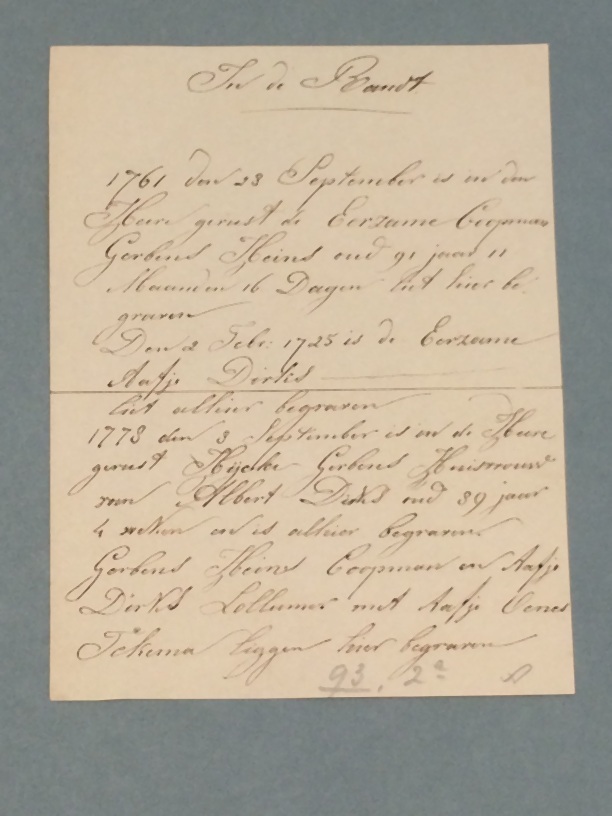 In de Randt
1761 den 23 September is in den
Heere gerust de Eerzame Coopman
Gerbens Heins oud 91 jaar 11
Maanden 16 Dagen leit hier be-
graven
Den 2 Febr: 1725 is de Eerzame
Aafje Dirks
leit alhier begraven
1773 den 3 September is in de Heere
gerust Gerbens Huisvrouw
van Albert Dirks oud 39 jaar
4 weken en is alhier begraven
Gerbens Heins Coopman en Aafje
Dirks Lollumer met Aafje Oenes
Tekema liggen hier begraven
93. 2a